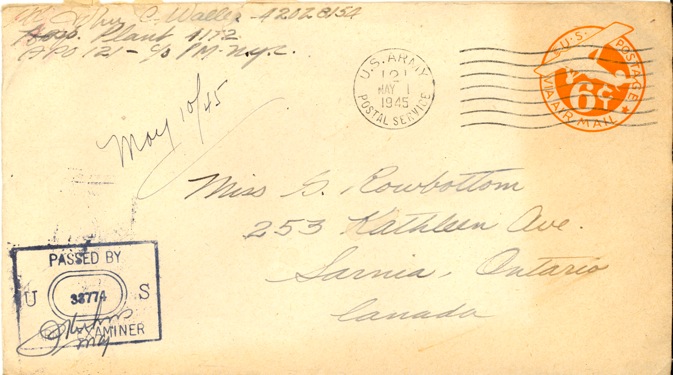 C. Waller - 42028152
Plant 1172
APO 121 - c/o PM. N.Y.C.
U.S. ARMY
121
MAY 1
1945
POSTAL SERVICE
U.S. POSTAGE
6¢
VIA AIR MAIL
May 10/45
Miss G. Rowbottom
253 Kathleen Ave.
Sarnia, Ontario
Canada
PASSED BY
U 33774 S
AMINER